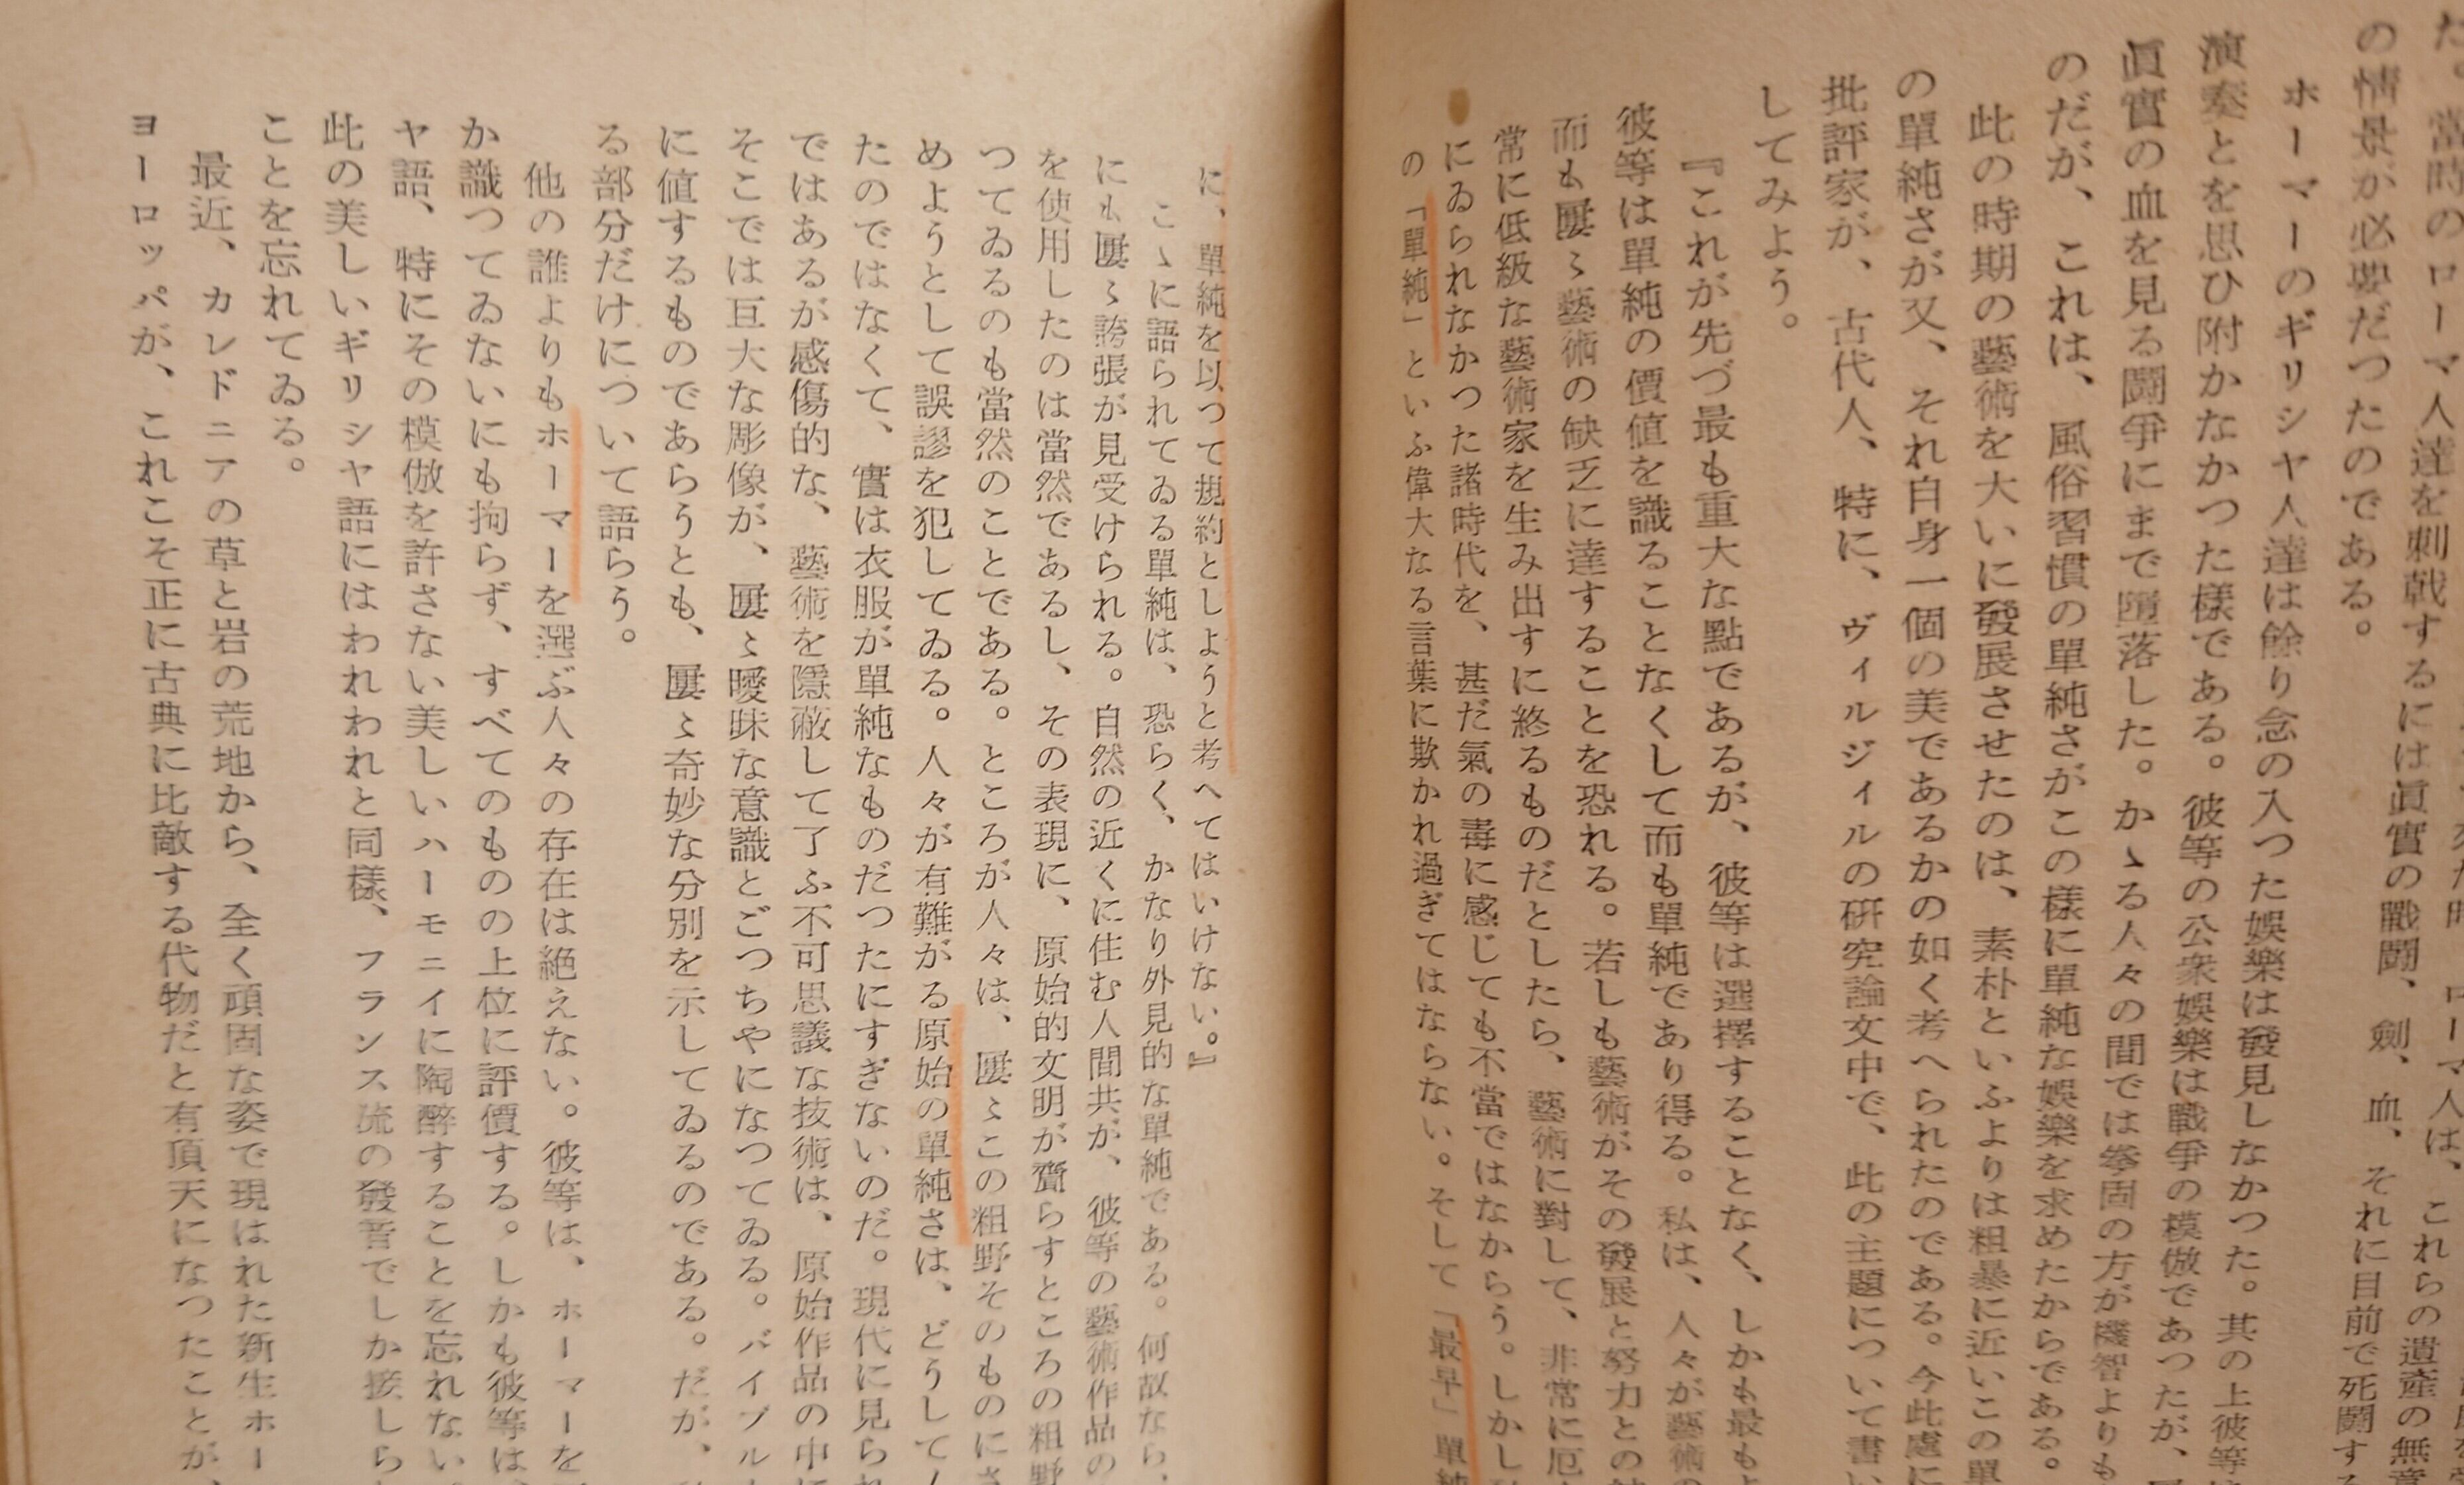 た。當時のローマ人達を刺戟するには眞實の戰鬪、劍、血、それに目前で死鬪する
の情景が必要だつたのである。
ホーマーのギリシヤ人達は餘り念の入つた娯樂は發見しなかつた。其の上彼等は
演奏とを思ひ附かなかつた樣である。彼等の公衆娯樂は戰爭の模倣であつたが、
眞實の血を見る鬪爭にまで墮落した。かゝる人々の間では拳固の方が機智よりも
のだが、これは、風俗習慣の單純さがこの樣に單純な娯樂を求めたからである。
此の時期の藝術を大いに發展させたのは、素朴といふよりは粗暴に近いこの單
の單純さが又、それ自身一個の美であるかの如く考へられたのである。今此處に
批評家が、古代人、特に、ヴィルジィルの研究論文中で、此の主題について書い
してみよう。
『これが先づ最も重大な點であるが、彼等は選擇することなく、しかも最もよ
彼等は單純の價値を識ることなくして而も單純であり得る。私は、人々が藝術の
而も屢〻藝術の缺乏に達することを恐れる。若しも藝術がその發展と努力との
常に低級な藝術家を生み出すに終るものだとしたら、藝術に對して、非常に厄
にゐられなかつた諸時代を、甚だ氣の毒に感じても不當ではなからう。しかし
の「單純」といふ偉大なる言葉に欺かれ過ぎてはならない。そして「最早」單純
に、單純を以つて規約としようと考へてはいけない。』
こゝに語られてゐる單純は、恐らく、かなり外見的な單純である。何故なら、
にも屢〻誇張が見受けられる。自然の近くに住む人間共が、彼等の藝術作品の
を使用したのは當然であるし、その表現に、原始的文明が齎らすところの粗野
つてゐるのも當然のことである。ところが人々は、屢〻この粗野そのものにさ
めようとして誤謬を犯してゐる。人々が有難がる原始の單純さは、どうして
たのではなくて、實は衣服が單純なものだつたにすぎないのだ。現代に見られ
ではあるが感傷的な、藝術を隱蔽して了ふ不可思議な技術は、原始作品の中に
そこでは巨大な彫像が、屢〻曖昧な意識とごつちやになつてゐる。バイブル
に値するものであらうとも、屢〻奇妙な分別を示してゐるのである。だが、
る部分だけについて語らう。
他の誰よりもホーマーを選ぶ人々の存在は絶えない。彼等は、ホーマーを
か識つてゐないにも拘らず、すべてのものの上位に評價する。しかも彼等は、
ヤ語、特にその模倣を許さない美しいハーモニイに陶醉することを忘れない。
此の美しいギリシヤ語にはわれわれと同樣、フランス流の發音でしか接しら
ことを忘れてゐる。
最近、カレドニアの草と岩の荒地から、全く頑固な姿で現はれた新生ホー
ヨーロッパが、これこそ正に古典に比敵する代物だと有頂天になつたことが、